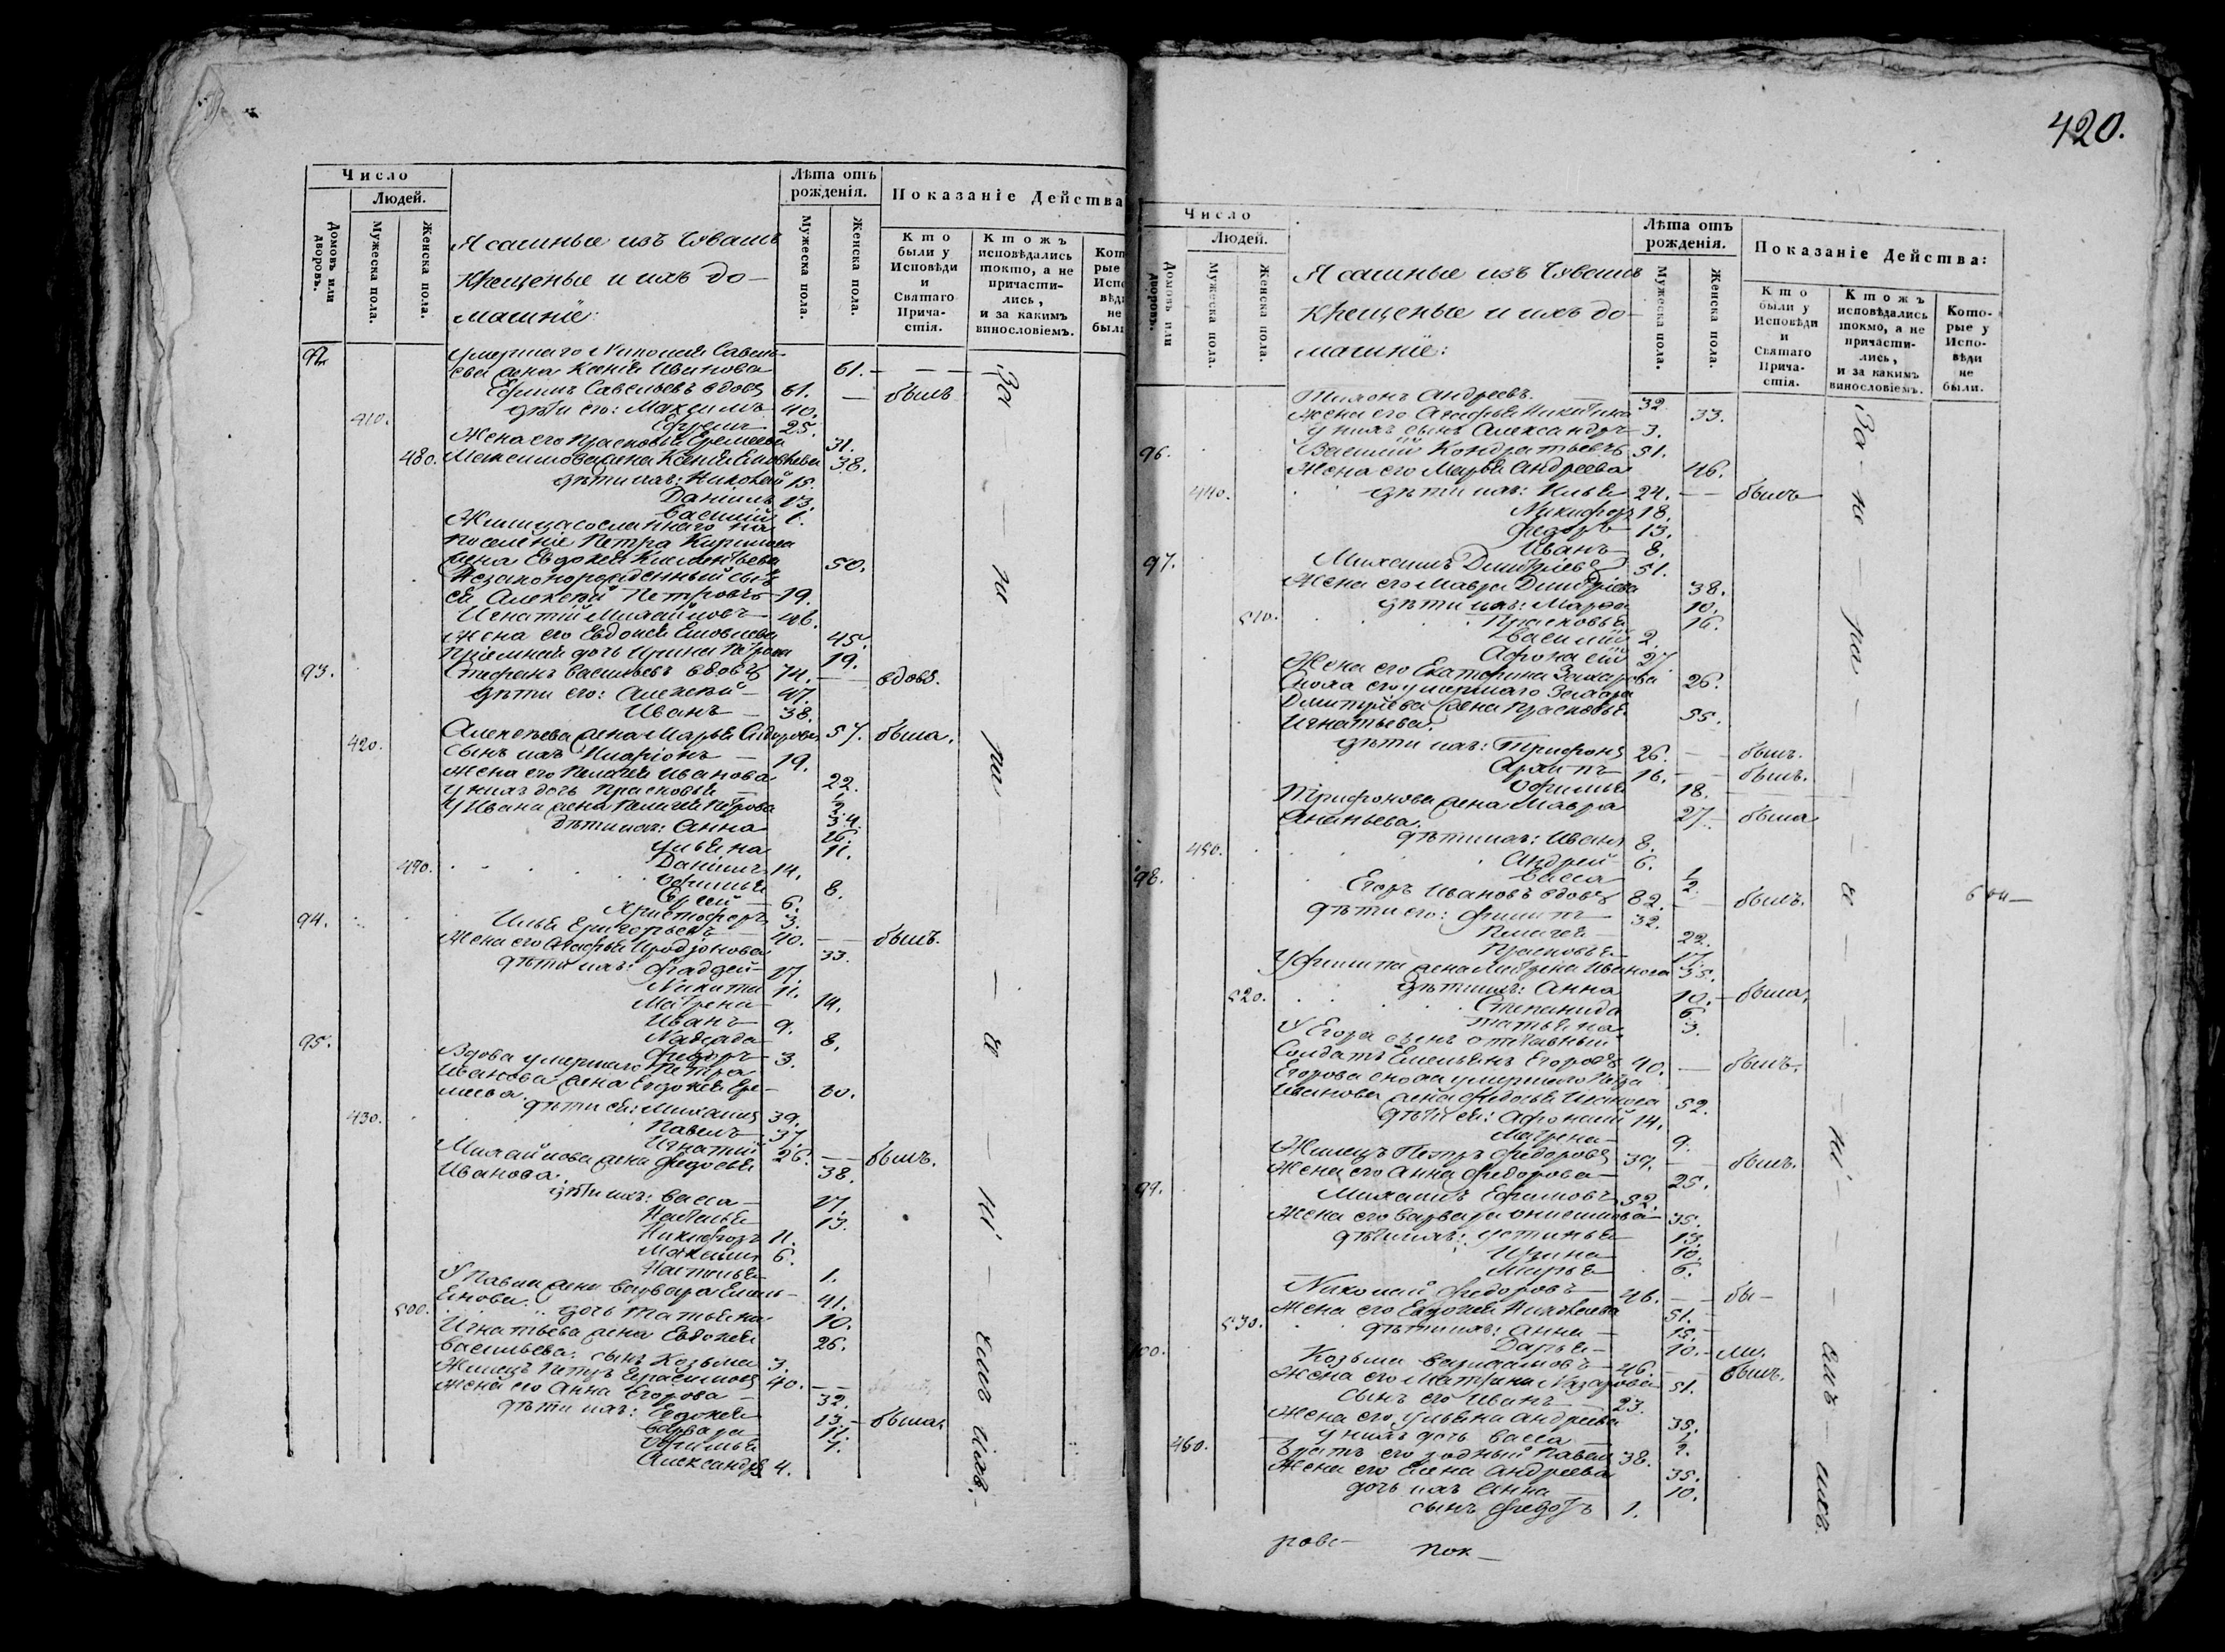 Число
Людей.
Домовъ или дворовъ.
Мужеска пола.
Женска пола.
Ясашные изъ Чувашъ
крещеные и ихъ до-
машніе:
Лѣта отъ рожденія.
Мужеска пола.
Женска пола.
Показаніе Действа
Кто были у Исповѣди и Святаго Прича- стія.
Ктожъ исповѣдались токмо, а не причасти- лись, и за какимъ винословіемъ.
Кот рые Исп вѣд не был
92.
Умершаго Николая Савель-
ева жена Ксенія Иванова 61.
Ефимъ Савельевъ вдовъ 61. былъ
410. дѣти его: Максимъ 40.
Ефремъ 25.
Жена его Прасковья Еремеева 31.
480. Максимова жена Ксенія Яковлева 38.
дѣти ихъ: Николай 15.
Даніилъ 13.
Василій 1.
Жилица сосланнаго на
поселеніе Петра Кирилова
жена Евдокія Климентьева 50.
Незаконорожденный сынъ
ея Алексѣй Петровъ 19.
Игнатій Михайловъ 46.
Жена его Евдокія Яковлева 45.
Пріемная дочь Ирина Петрова 19.
93. Стефанъ Васильевъ вдовъ 74. вдовъ.
дѣти его: Алексѣй 47.
Иванъ 38.
Алексѣева жена Марья Сидорова 57. была.
420. Сынъ ихъ Иларіонъ 19.
Жена его Пелагея Иванова 22.
у нихъ дочь Прасковья 1/2
У Ивана жена Пелагея Петрова 34.
дѣти ихъ: Анна 16.
Ульяна 11.
490. Даніилъ 14.
Офимья 8.
Сергей 6.
Христофоръ 3.
94. Илья Григорьевъ 40. былъ.
Жена его Агафья Иродіонова 33.
дѣти ихъ: Фаддей 17.
Никита 11.
Матрена 14.
Иванъ 9.
Надежда 8.
Федоръ 3.
95. Вдова умершаго Петра
Иванова жена Евдокія Ере-
меева. 60.
430. дѣти ея: Михаилъ 39.
Павелъ 37.
Игнатій 26. былъ.
Михайлова жена Федосья 38.
Иванова.
дѣти ихъ: Васса 17.
Наталья 13.
Никифоръ 11.
Максимъ 6.
Настасья 1.
У Павла жена Варвара Емель-
янова. 41.
500. дочь Татьяна 10.
Игнатьева жена Евдокія 26.
Васильева. сынъ Козьма 3.
Жилецъ Петръ Герасимовъ 40.
жена его Анна Егорова 32.
дѣти ихъ: Евдокія 13. была.
Варвара 11.
Офимья 7.
Александръ 4.
420.
Число
Людей.
Домовъ или дворовъ.
Мужеска пола.
Женска пола.
Ясашные изъ Чувашъ
крещеные и ихъ до-
машніе:
Лѣта отъ рожденія.
Мужеска пола.
Женска пола.
Показаніе Действа:
Кто были у Исповѣди и Святаго Прича- стія.
Ктожъ исповѣдались токмо, а не причасти- лись, и за какимъ винословіемъ.
Кото- рые у Испо- вѣди не были.
Тихонъ Андреевъ. 32.
Жена его Агафья Никитина 33.
у нихъ сынъ Александръ 3.
96. Василій Кондратьевъ 51.
Жена его Марья Андреева 46.
440. дѣти ихъ: Илья 24. былъ
Никифоръ 18.
Федоръ 13.
Иванъ 8.
97. Михаилъ Дмитріевъ 51.
Жена его Мавра Дмитріева 38.
дѣти ихъ: Марфа 10.
510. Прасковья 16.
Василій 2.
Афонасій 27.
Жена его Екатерина Захарова 26.
Сноха его умершаго Захара
Дмитріева жена Прасковья 55.
Игнатьева.
дѣти ихъ: Трифонъ 26. былъ.
Архипъ 16. былъ.
Офимья 18.
Трифонова жена Мавра 27. была
Ананьева.
450. дѣти ихъ: Иванъ 8.
Андрей 6.
Васса 1/2
98. Егоръ Ивановъ вдовъ 82. былъ.
дѣти его: Филиппъ 32.
Пелагея 22.
Прасковья 17.
У Филиппа жена Матрена Иванова 35.
520. дѣти ихъ: Анна 10. была.
Степанида 6.
Татьяна 3.
У Егора сынъ отставный
Солдатъ Емельянъ Егоровъ 40. былъ.
Егорова сноха умершаго Петра
Иванова жена Федосья Иванова 52.
дѣти ея: Афонасій 14.
Матрена 9.
Жилецъ Петръ Федоровъ 39. былъ.
Жена его Анна Федорова 25.
99. Михаилъ Ефимовъ 52.
Жена его Варвара Онисимова 35.
дѣти ихъ: Устинья 13.
Ирина 10.
Марья 6.
Николай Федоровъ 46. бы-
Жена его Евдокія Николаева 51.
530. дѣти ихъ: Анна 15.
Дарья 10. ли.
100. Козьма Варламовъ 46. былъ.
Жена его Матрена Назарова 51.
сынъ его Иванъ 23.
Жена его Ульяна Андреева 35.
у нихъ дочь Васса 1/2
460. Братъ его родный Павелъ 38.
Жена его Елена Андреева 35.
дочь ихъ Анна 10.
сынъ Федотъ 1.